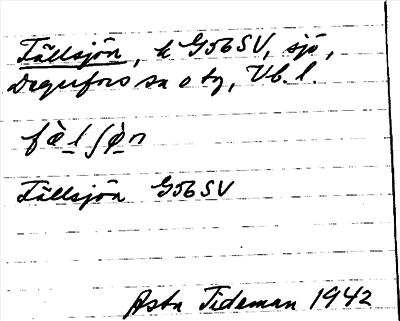 Fällsjön, k G56SV, sjö,
Degerfors sn o tg, Vb. l.
fæ̀lʃø̀n
Fällsjön G56SV
Asta Tideman 1942